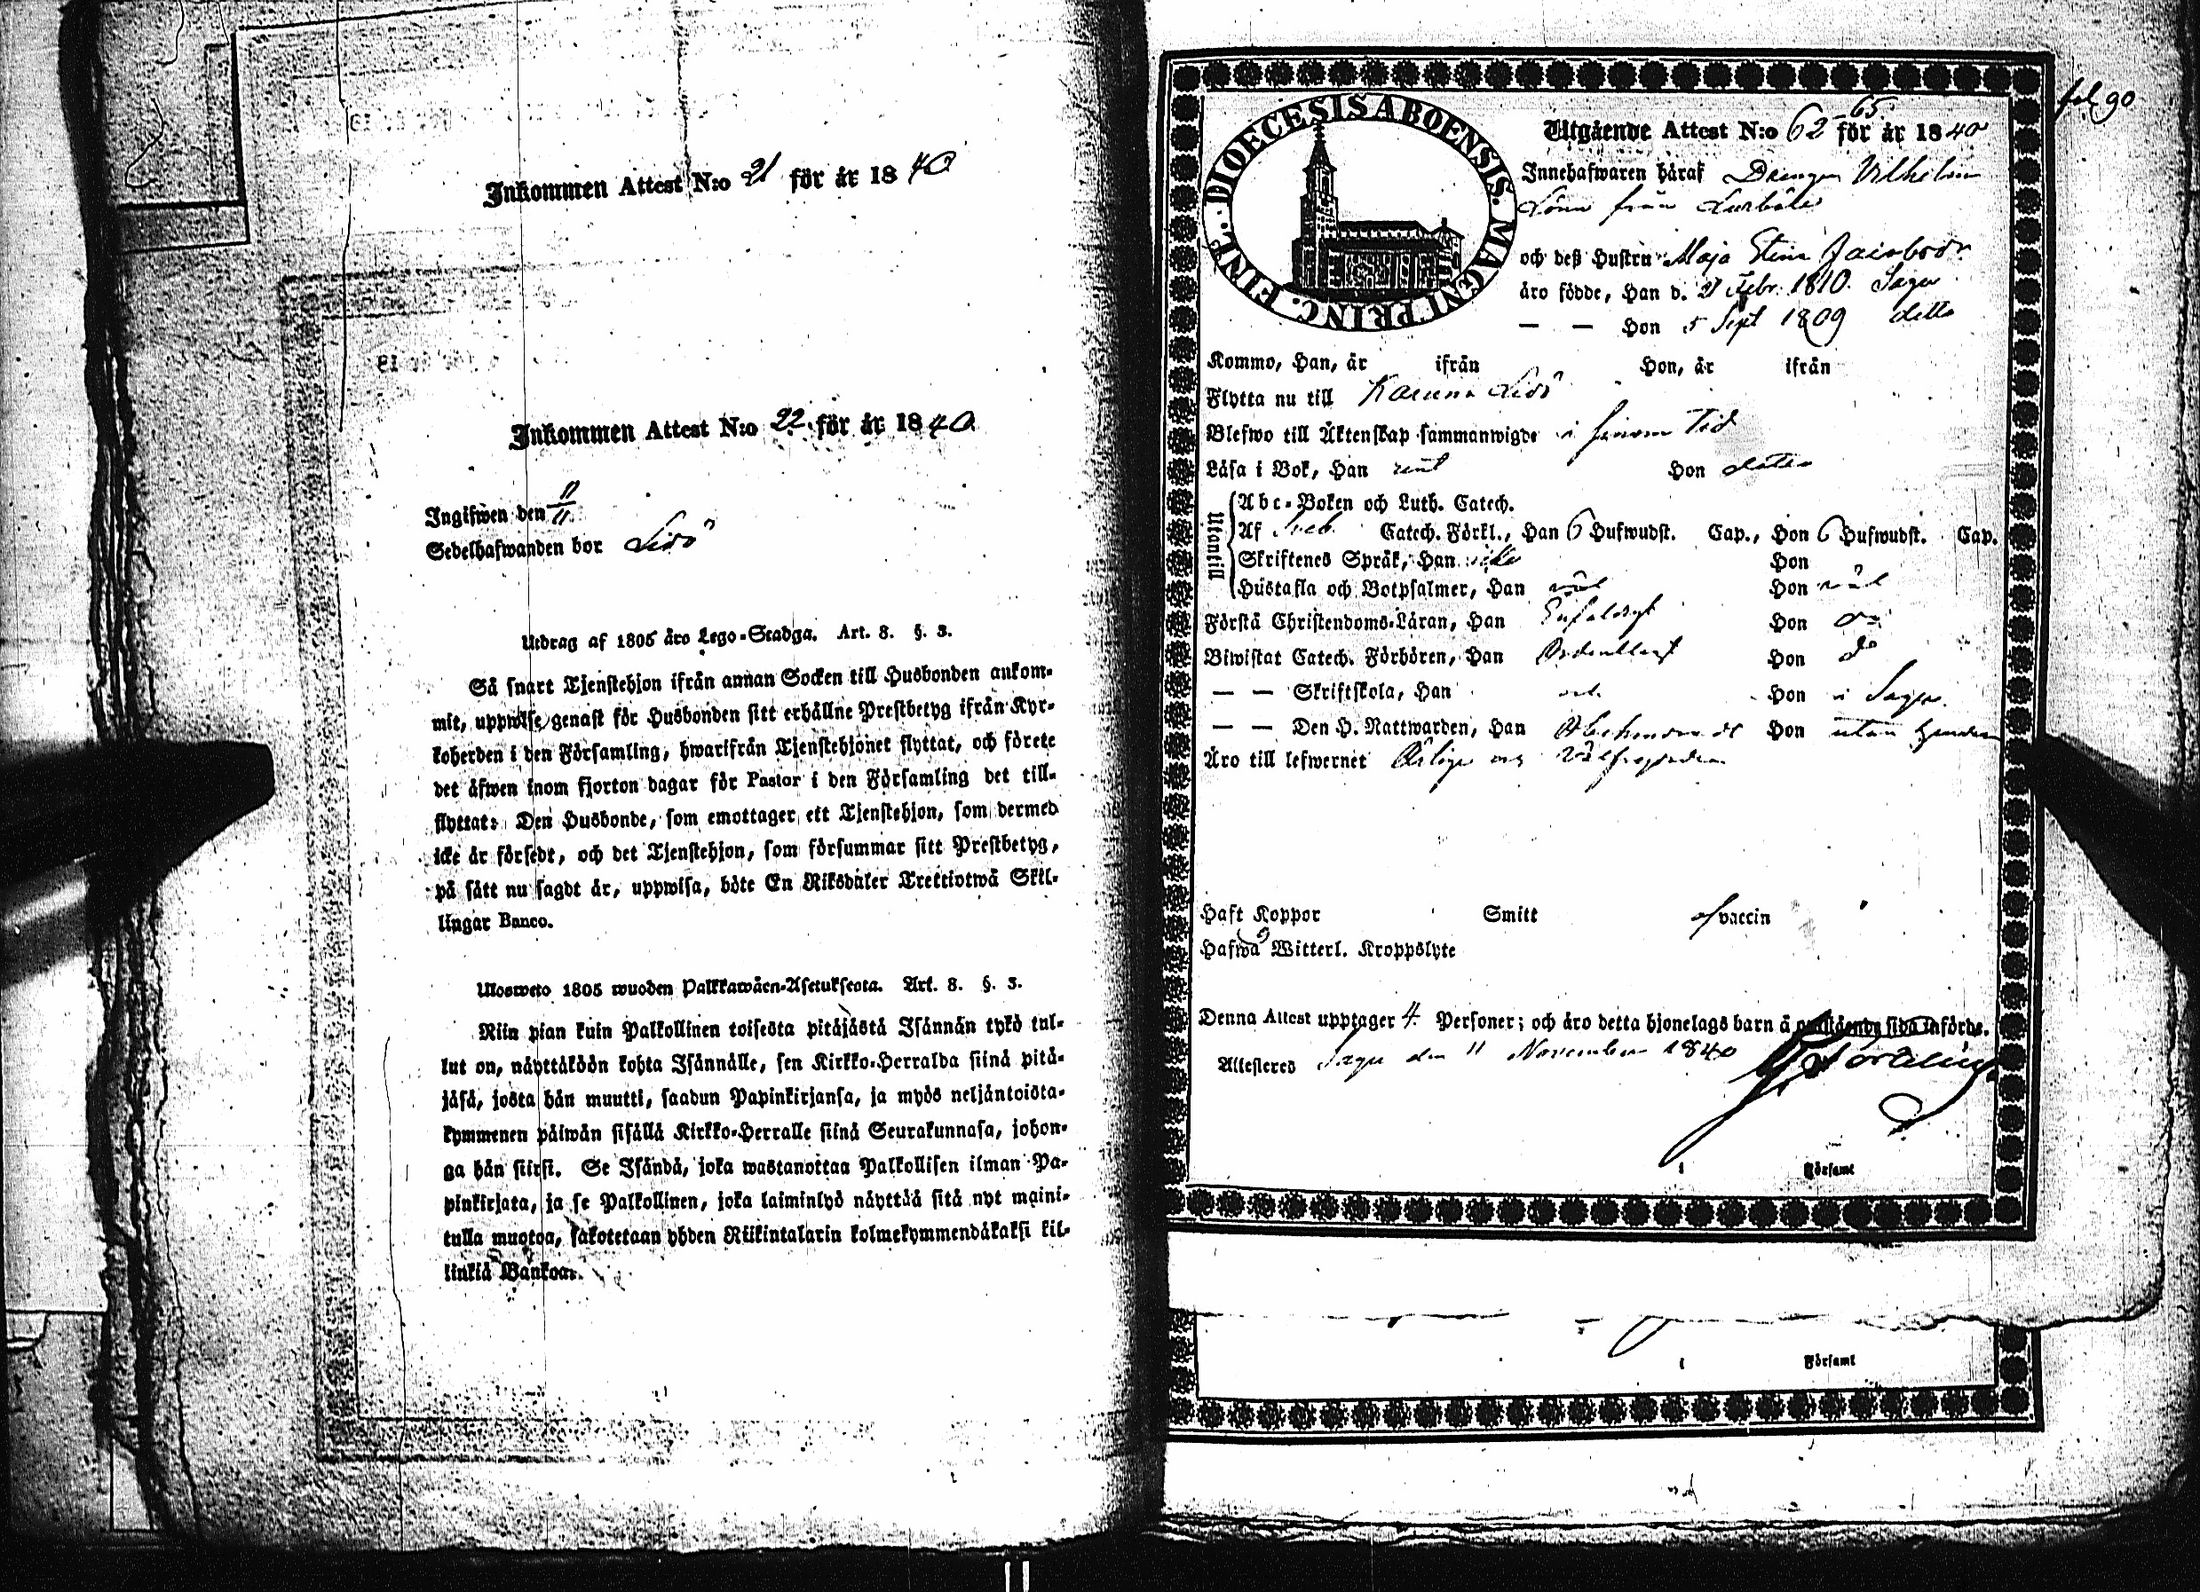 Inkommen Attest N:o 21 för år 1840
Inkommen Attest N:o 22 för år 1840
Ingifwen den 11/11
Sedelhafwanden bor Lidö
Utdrag af 1805 års Lego-Stadga. Art. 8. §. 3.
Så snart Tjenstehjon ifrån annan Socken till Husbonden ankom-
mit, uppwise genast för Husbonden sitt erhållne Prestbetyg ifrån Kyr-
koherden i den Församling, hwarifrån Tjenstehjonet flyttat, och förete
det äfwen inom fjorton dagar för Pastor i den Församling det till-
flyttat: Den Husbonde, som emottager ett Tjenstehjon, som dermed
icke är försedt, och det Tjenstehjon, som försummar sitt Prestbetyg,
på sätt nu sagdt är, uppwisa, böte En Riksdaler Trettiotwå Skil-
lingar Banco.
Ulosweto 1805 wuoden Palkkawäen-Asetuksesta. Art. 8. §. 3.
Niin pian kuin Palkollinen toisesta pitäjästä Isännän tykö tul-
lut on, näyttäköön kohta Isännälle, sen Kirkko-Herralda siinä pitä-
jäsä, josta hän muutti, saadun Papinkirjansa, ja myös neljäntoista-
kymmenen päiwän sisällä Kirkko-Herralle siinä Seurakunnasa, johon-
ga hän siirsi. Se Isändä, joka wastanottaa Palkollisen ilman Pa-
pinkirjata, ja se Palkollinen, joka laiminlyö näyttää sitä nyt maini-
tulla muotoa, sakotetaan yhden Riikintalarin kolmekymmendäkaksi kil-
linkiä Bankoa.
fol 90
DIOECESIS ABOENSIS. MAGNI PRINC. FINL.
Utgående Attest N:o 62-65 för år 1840
Innehafwaren häraf Drengen Vilhelm
Lönn från
och deß Hustru Maja Stina Jacobsdr
äro födde, Han d. 21 Febr. 1810. Sagu
— — Hon 5 Sept 1809 detto
Kommo, Han, år ifrån Hon, år ifrån
Flytta nu till Karuna Lidö
Blefwo till Äktenskap sammanwigde i sinom Tid
Läsa i Bok, Han rent Hon detto
Utantill
Abc-Boken och Luth. Catech.
Af Sveb. Catech. Förkl., Han 6 Hufwudst. Cap., Hon 6 Hufwudst. Cap.
Skriftenes Språk, Han icke Hon
Hustafla och Botpsalmer, Han väl Hon väl
Förstå Christendoms-Läran, Han Enfaldigt Hon do
Biwistat Catech. Förhören, Han Ordentligt Hon do
— — Skriftskola, Han och Hon i Sagu
— — Den H. Nattwarden, Han Hon utan hinder
Äro till lefwernet Ärlige och Välfrejdade
Haft Koppor Smitt af vaccin
Hafwa Witterl. Kroppslyte
Denna Attest upptager 4 Personer; och äro detta hjonelags barn å omstående sida införde.
Attesteres Sagu den 11 November 1840
i Församl
i Församl